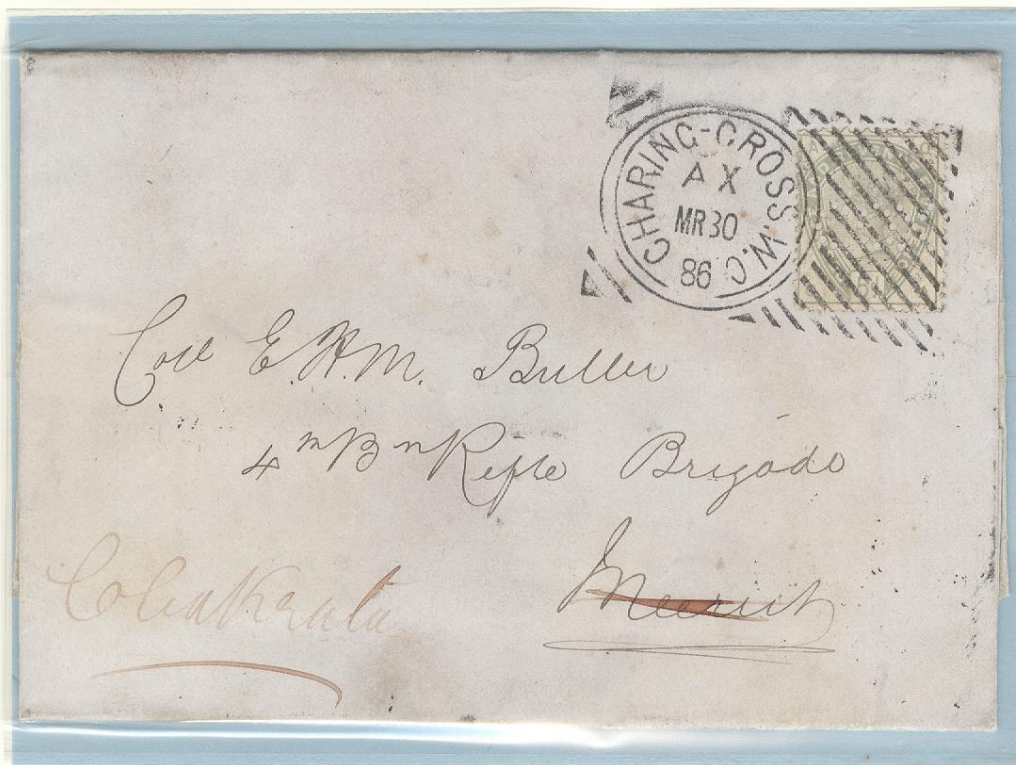 CHARING-CROSS.W.C
A X
MR 30
86
Col E. H. M. Buller
4th Bn Rifle Brigade
Meerut
Chakrata